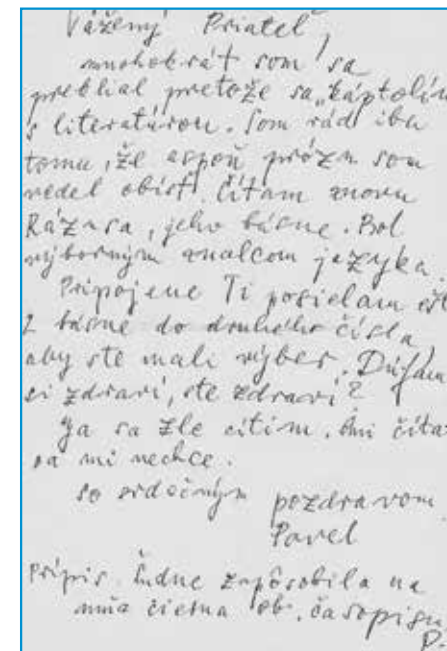 Vážený Priateľ,
mnohokrát som sa
preklial pretože sa
s literatúrou. Som rád iba
tomu, že aspoň prózu som
vedel obísť. Čítam znovu
Rázusa, jeho básne. Bol
výborným znalcom jazyka.
Pripojene Ti posielam
2 básne do druhého čísla,
aby ste mali výber. Dúfam
si zdraví, ste zdraví?
Ja sa zle cítim. Ani číta
sa mi nechce.
so srdečným pozdravom
Pavel
Prípis. zapôsobila na
mňa čierna ob. časopisu
P.